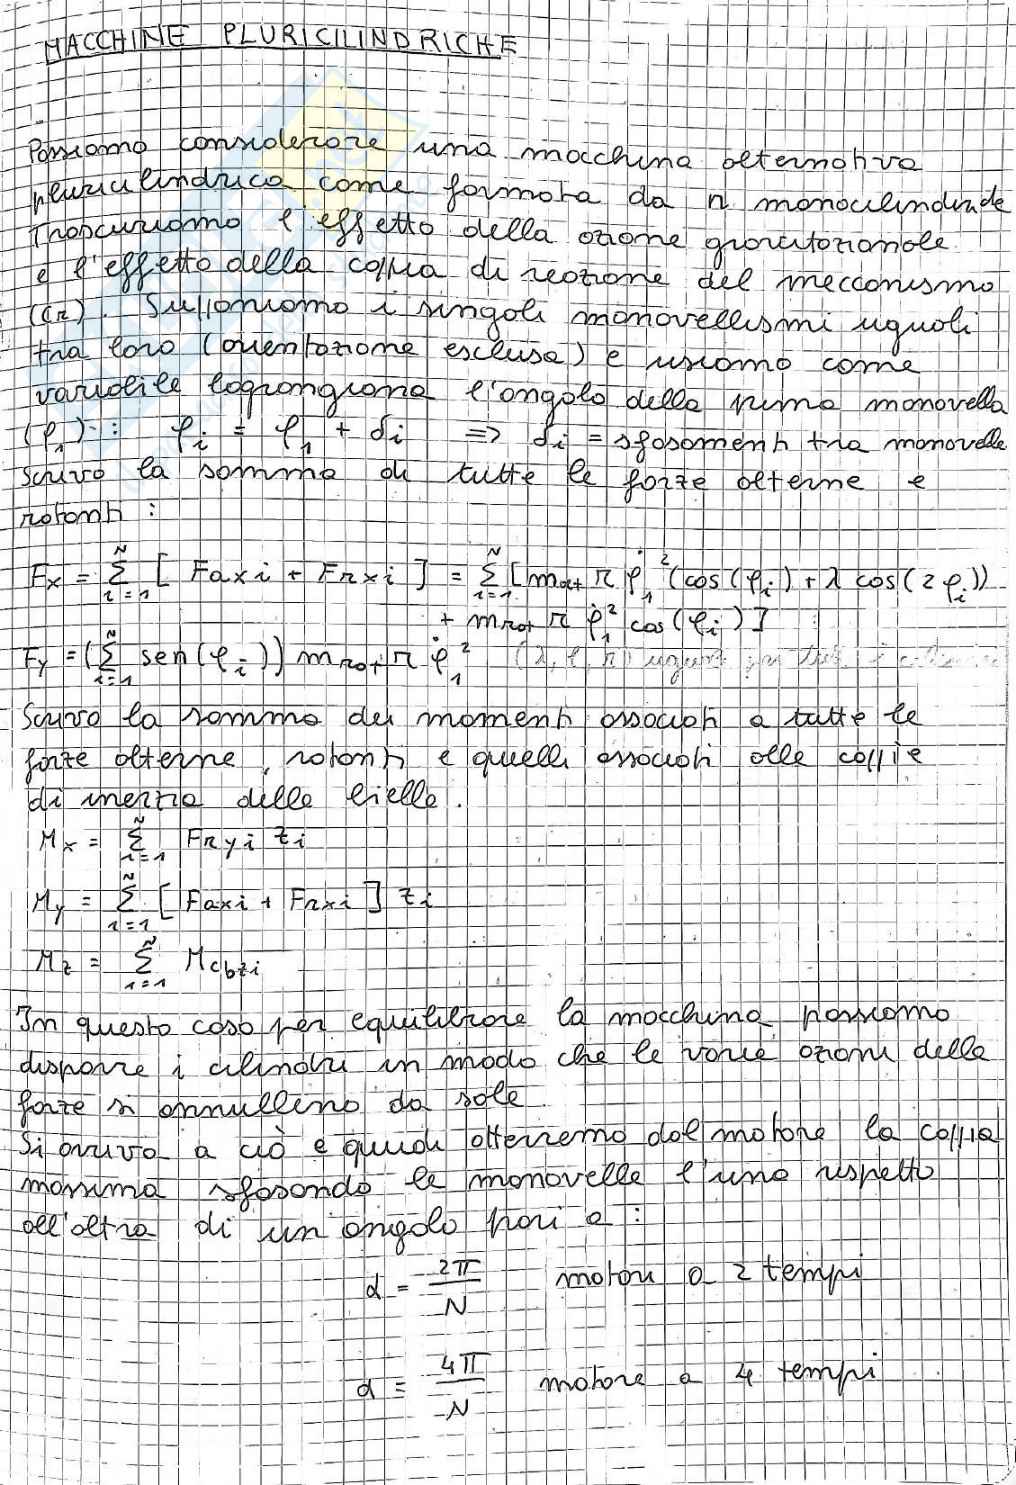 MACCHINE PLURICILINDRICHE
Possiamo considerare una macchina alternativa
pluricilindrica come formata da n monocilindriche
Trascuriamo l'effetto della azione gravitazionale
e l'effetto della coppia di reazione del meccanismo
(Cr). Supponiamo i singoli manovellismi uguali
tra loro (orientazione esclusa) e usiamo come
variabile lagrangiana l'angolo della prima manovella
(φ₁) : φi = φ₁ + δi => δi = sfasamenti tra manovelle
Scrivo la somma di tutte le forze alterne e
rotanti :
Fx = Σ i=1 N [ Faxi + Frxi ] = Σ i=1 N [ malt r φ̇₁² (cos(φi) + λ cos(2φi))
+ mrot r φ̇₁² cos(φi) ]
Fy = ( Σ i=1 N sen(φi) ) mrot r φ̇₁²
Scrivo la somma dei momenti associati a tutte le
forze alterne, rotanti e quelli associati alle coppie
di inerzia delle bielle.
Mx = Σ i=1 N Fryi zi
My = Σ i=1 N [ Faxi + Frxi ] zi
Mz = Σ i=1 N Mcbzi
In questo caso per equilibrare la macchina possiamo
disporre i cilindri in modo che le varie azioni delle
forze si annullino da sole
Si arriva a ciò e quindi otterremo dal motore la coppia
massima sfasando le manovelle l'una rispetto
all'altra di un angolo pari a :
α = 2π / N motori a 2 tempi
α = 4π / N motore a 4 tempi